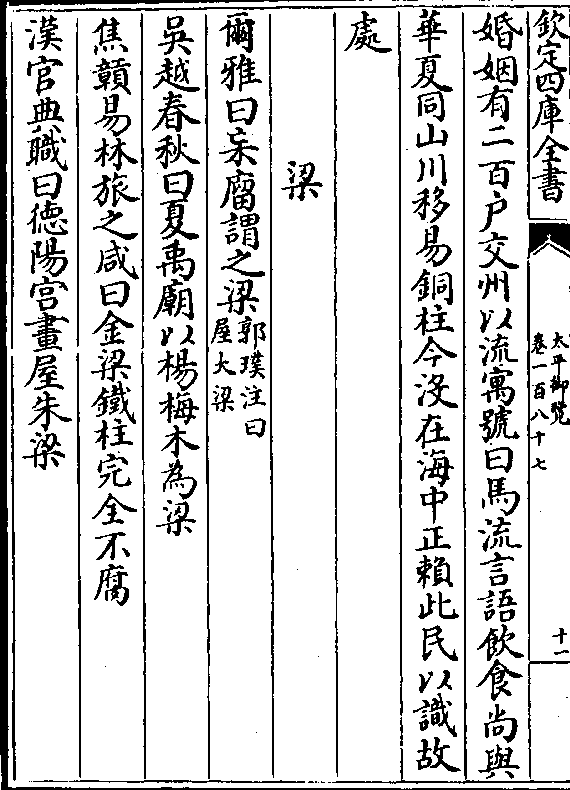 欽定四庫全書
太平御覽
卷一百八十七
十一
婚姻有二百户交州以流寓號曰馬流言語飲食尚與
華夏同山川移易銅柱今沒在海中正賴此民以識故
處
梁
爾雅曰杗廇謂之梁郭璞注曰屋大梁
吳越春秋曰夏禹廟以楊梅木為梁
焦贛易林旅之咸曰金梁鐵柱完全不腐
漢官典職曰徳陽宫畫屋朱梁